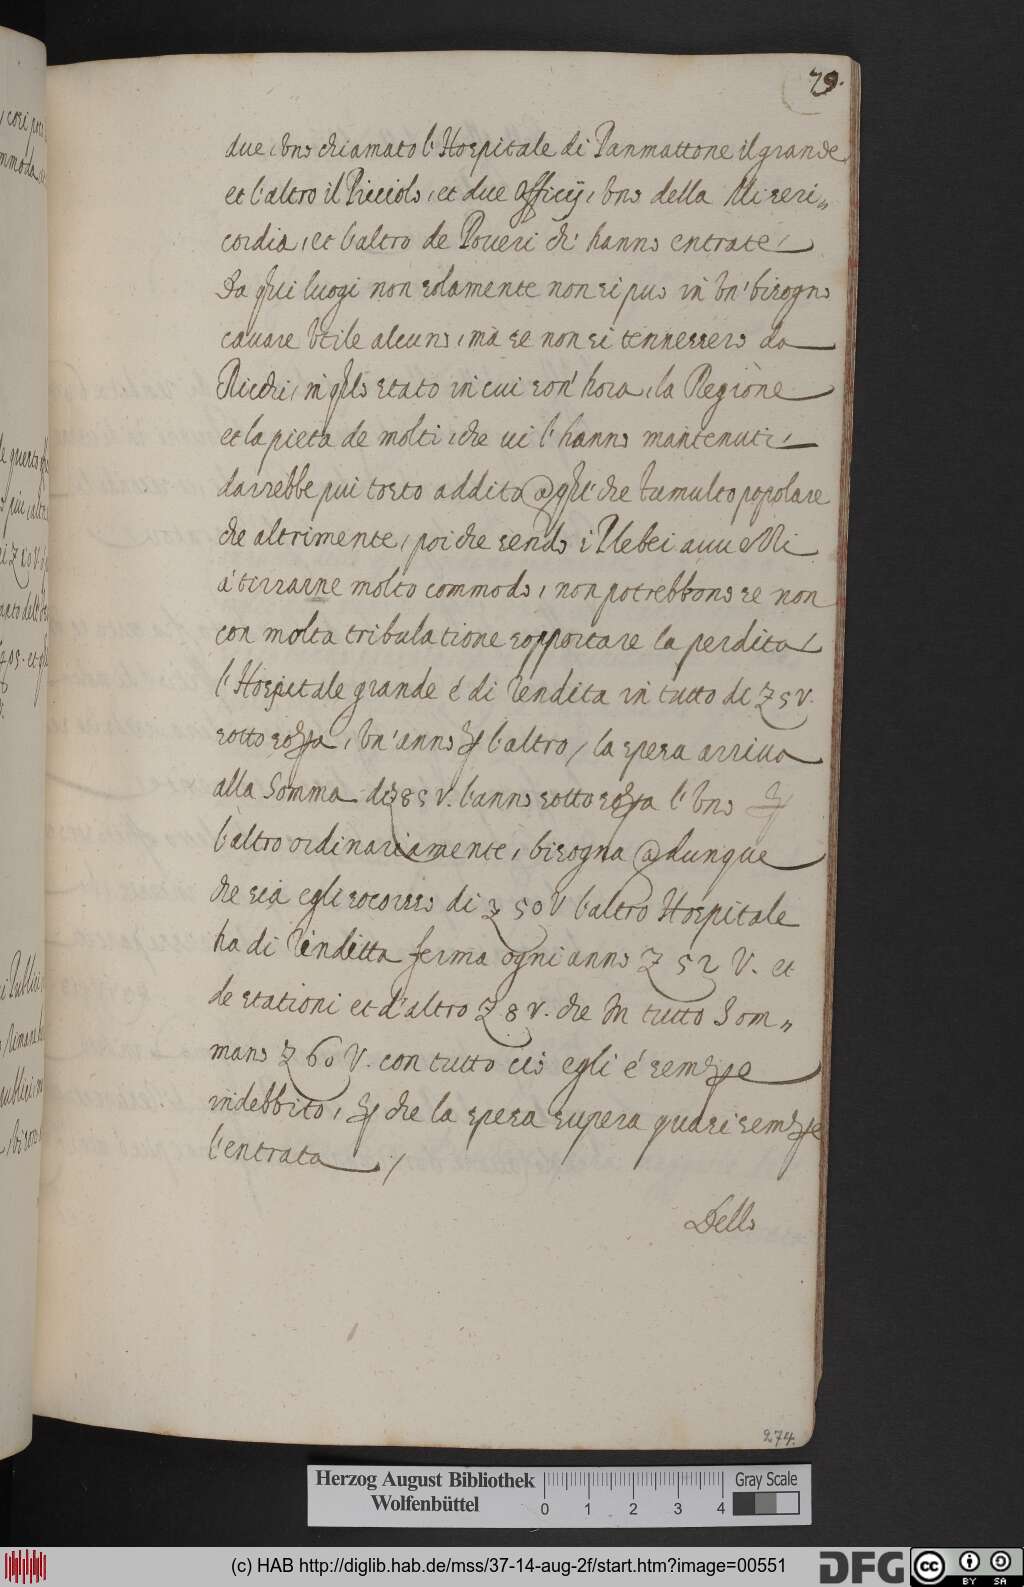 79.
due, uno chiamato l'Hospitale di Panmattone il grande
et l'altro il Picciolo, et due offficij, uno della Miseri„
cordia, et l'altro de Poueri ch' hanno entrate
Da q̃lli luogi non solamente non si puo in un' bisogno
cauare utile alcuno, mà se non si tennessero da
Ricchi, in q̃llo stato in cui son' hora, la Regione
et la pieta de molti, che ui l'hanno mantenuti,
darrebbe pui tosto addito @ q̃l che tumulto popolare
che altrimente, poi che sendo i Plebei auu
á tirrarne molto commodo, non potrebbono se non
con molta tribulatione sopportare la perdita
l'Hospitale grande é di rendita in tutto di Z 5 V.
sotto sopra, un' anno ꝑ l'altro, la spesa arriua
alla Somma di Z 85 V. l'anno sotto sopra l'uno ꝑ
l'altro ordinariamente, bisogna @dunque
che sia egli socorso di Z 50 V l'altro Hospitale
ha di renditta ferma ogni anno Z 52 V. et
de stationi et d'altro Z 8 V. che In tutto Som„
mano Z 60 V. con tutto ciò egli é sempre
indebbito, ꝑ che la spesa supera quasi sempre
l'entrata /
Dello
274.
Herzog August Bibliothek
Wolfenbüttel
0 1 2 3 4
Gray Scale
(c) HAB http://diglib.hab.de/mss/37-14-aug-2f/start.htm?image=00551
DFG
cc BY SA